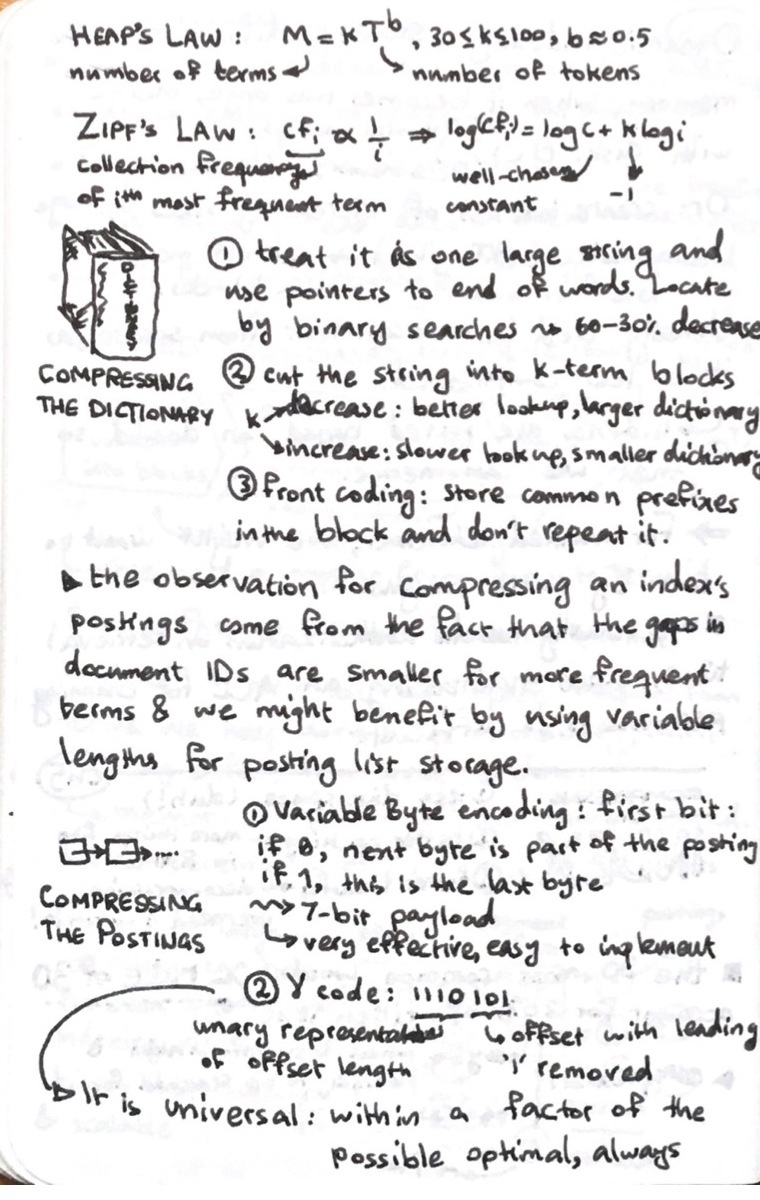 HEAP'S LAW : M = kT^b, 30≤k≤100, b≈0.5
number of terms number of tokens
ZIPF'S LAW : cfi ∝ 1/i ⇒ log(cfi) = log c + k log i
collection frequency well-chosen
of iᵗʰ most frequent term constant -1
① treat it as one large string and
use pointers to end of words. Locate
by binary searches ⇝ 60-30% decrease
DICTIONARY
COMPRESSING
THE DICTIONARY
② cut the string into k-term blocks
k → decrease: better lookup, larger dictionary
↘ increase: slower lookup, smaller dictionary
③ front coding: store common prefixes
in the block and don't repeat it.
▶ the observation for compressing an index's
postings come from the fact that the gaps in
document IDs are smaller for more frequent
terms & we might benefit by using variable
lengths for posting list storage.
① Variable Byte encoding: first bit:
if 0, next byte is part of the posting
if 1, this is the last byte
⇝ 7-bit payload
↳ very effective, easy to inplement
COMPRESSING
THE POSTINGS
② γ code: 1110 101
unary representation ↳ offset with leading
of offset length '1' removed
▷ It is universal: within a factor of the
possible optimal, always